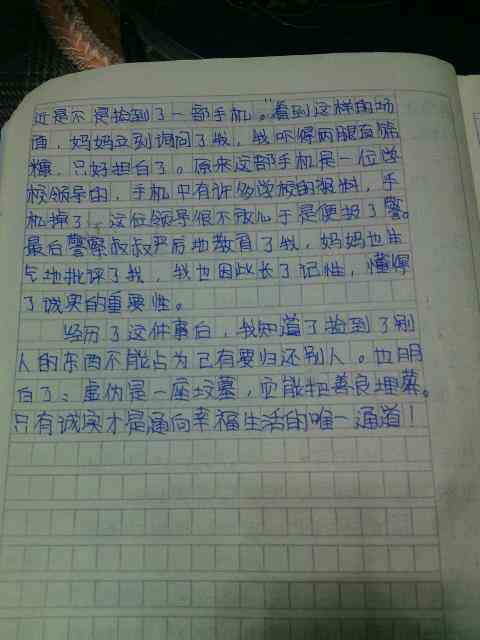 近是不是捡到了一部手机。"看到这样的场
面，妈妈立刻询问了我，我吓得两腿直筛
糠，只好坦白了。原来这部手机是一位学
校领导的，手机中有许多学校的资料，手
机掉了，这位领导很不放心于是便报了警。
最后警察叔叔严厉地教育了我，妈妈也生
气地批评了我，我也因此长了记性，懂得
了诚实的重要性。
经历了这件事后，我知道了捡到了别
人的东西不能占为己有要归还别人。也明
白了：虚伪是一座坟墓，更能把善良埋葬。
只有诚实才是通向幸福生活的唯一通道！